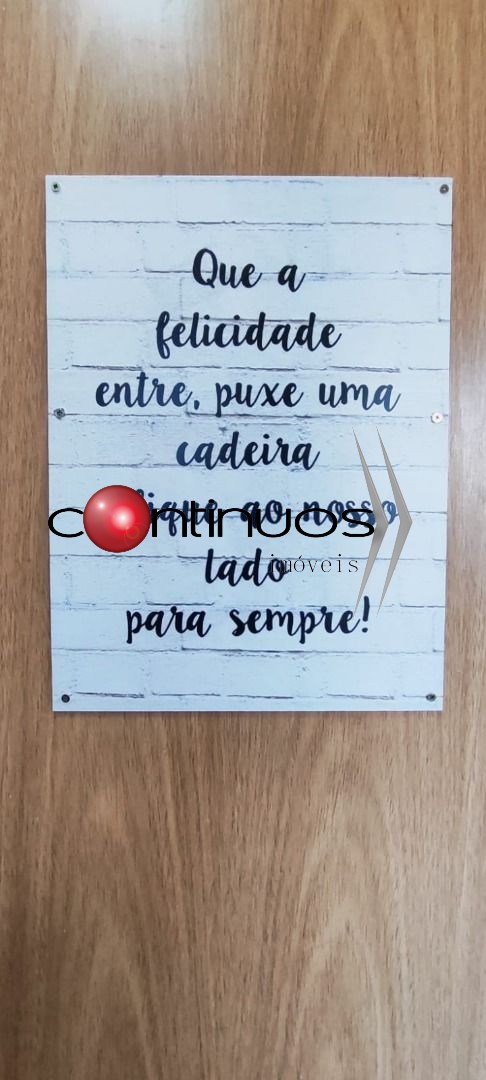 Que a
felicidade
entre, puxe uma
cadeira
e fique ao nosso
lado
para sempre!
continuos
imóveis